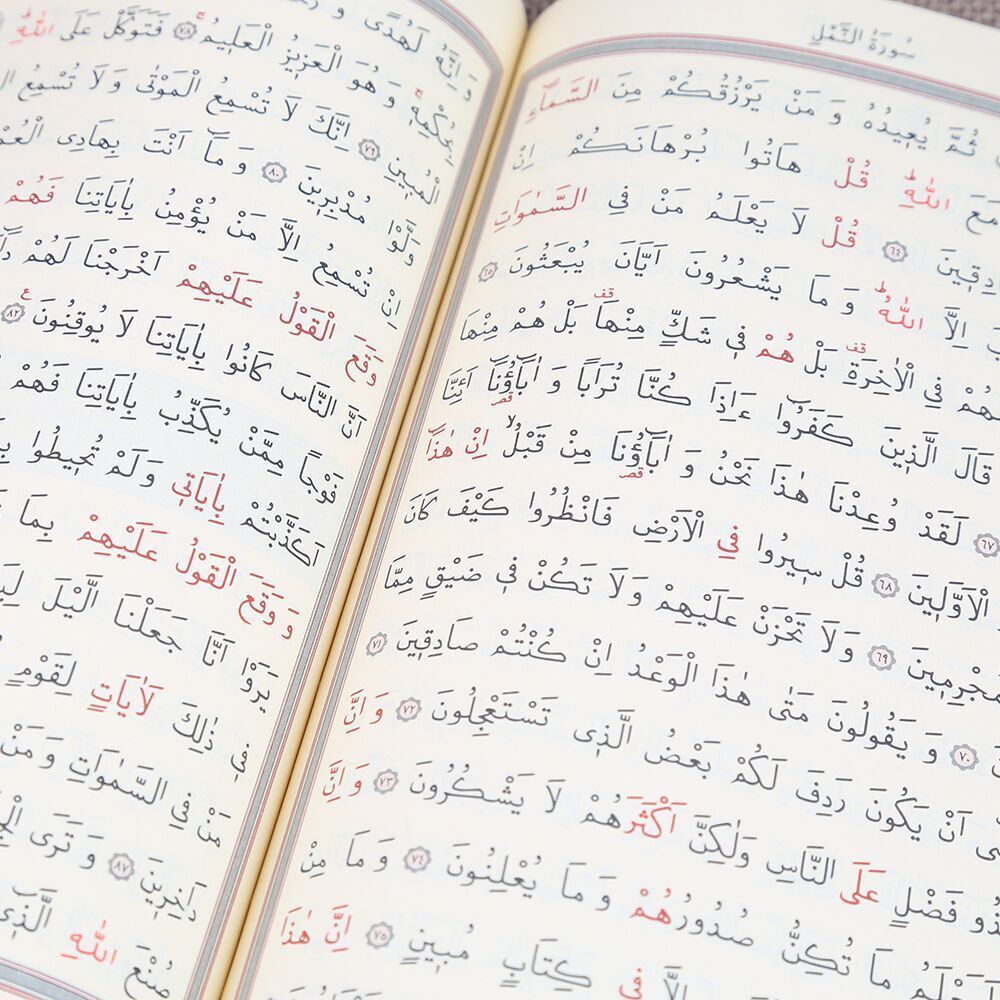 سُورَةُ النَّمْلِ
ثُمَّ يُعِيدُهُ وَ مَنْ يَرْزُقُكُمْ مِنَ السَّمَٓاءِ
مَعَ اللّٰهِ قُلْ هَاتُوا بُرْهَانَكُمْ اِنْ
دِقِينَ ﴿٦٤﴾ قُلْ لَا يَعْلَمُ مَنْ فِي السَّمٰوَاتِ
اِلَّا اللّٰهُ وَ مَا يَشْعُرُونَ اَيَّانَ يُبْعَثُونَ ﴿٦٥﴾
هُمْ فِي الْاٰخِرَةِ قف بَلْ هُمْ فِي شَكٍّ مِنْهَا قف بَلْ هُمْ مِنْهَا
قَالَ الَّذِينَ كَفَرُٓوا ءَاِذَا كُنَّا تُرَابًا وَ اٰبَٓاؤُنَٓا قصر اَئِنَّا
﴿٦٧﴾ لَقَدْ وُعِدْنَا هٰذَا نَحْنُ وَ اٰبَٓاؤُنَا قصر مِنْ قَبْلُ لا اِنْ هٰذَٓا
الْاَوَّلِينَ ﴿٦٨﴾ قُلْ سِيرُوا فِي الْاَرْضِ فَانْظُرُوا كَيْفَ كَانَ
مُجْرِمِينَ ﴿٦٩﴾ وَلَا تَحْزَنْ عَلَيْهِمْ وَلَا تَكُنْ فِي ضَيْقٍ مِمَّا
﴿٧٠﴾ وَ يَقُولُونَ مَتٰى هٰذَا الْوَعْدُ اِنْ كُنْتُمْ صَادِقِينَ ﴿٧١﴾
اَنْ يَكُونَ رَدِفَ لَكُمْ بَعْضُ الَّذِي تَسْتَعْجِلُونَ ﴿٧٢﴾ وَ اِنَّ
ذُو فَضْلٍ عَلَى النَّاسِ وَلٰكِنَّ اَكْثَرَهُمْ لَا يَشْكُرُونَ ﴿٧٣﴾ وَ اِنَّ
مَا تُكِنُّ صُدُورُهُمْ وَ مَا يُعْلِنُونَ ﴿٧٤﴾ وَ مَا مِنْ
اِلَّا فِي كِتَابٍ مُبِينٍ ﴿٧٥﴾ اِنَّ هٰذَا
وَ اِنَّهُ لَهُدًى وَ
بِحُكْمِهِ وَ هُوَ الْعَزِيزُ الْعَلِيمُ ﴿٧٨﴾ فَتَوَكَّلْ عَلَى اللّٰهِ
الْمُبِينِ ﴿٧٩﴾ اِنَّكَ لَا تُسْمِعُ الْمَوْتٰى وَ لَا تُسْمِعُ
وَلَّوْا مُدْبِرِينَ ﴿٨٠﴾ وَ مَٓا اَنْتَ بِهَادِى الْعُمْ
اِنْ تُسْمِعُ اِلَّا مَنْ يُؤْمِنُ بِاٰيَاتِنَا فَهُمْ
وَقَعَ الْقَوْلُ عَلَيْهِمْ اَخْرَجْنَا لَهُمْ دَٓا
اَنَّ النَّاسَ كَانُوا بِاٰيَاتِنَا لَا يُوقِنُونَ ع ﴿٨٢﴾
فَوْجًا مِمَّنْ يُكَذِّبُ بِاٰيَاتِنَا فَهُمْ
اَكَذَّبْتُمْ بِاٰيَاتِي وَلَمْ تُحِيطُوا
وَ وَقَعَ الْقَوْلُ عَلَيْهِمْ بِمَا
يَرَوْا اَنَّا جَعَلْنَا الَّيْلَ
فِي ذٰلِكَ لَاٰيَاتٍ لِقَوْمٍ
مَنْ فِي السَّمٰوَاتِ وَ مَنْ
دَاخِرِينَ ﴿٨٧﴾ وَ تَرَى
صُنْعَ اللّٰهِ الَّذِٓي